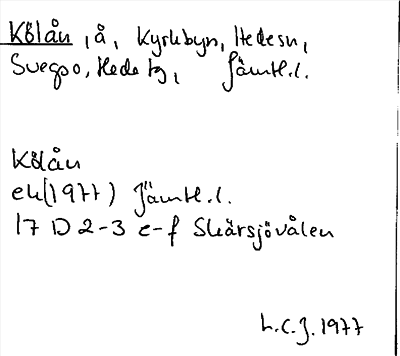 Kölån, å, Kyrkbyn, Hedesn,
Svegso, Hede tg, Jämtl.l.
Kölån
ek(1977) Jämtl.l.
17 D 2-3 e-f Skärsjövålen
L.C.J. 1977